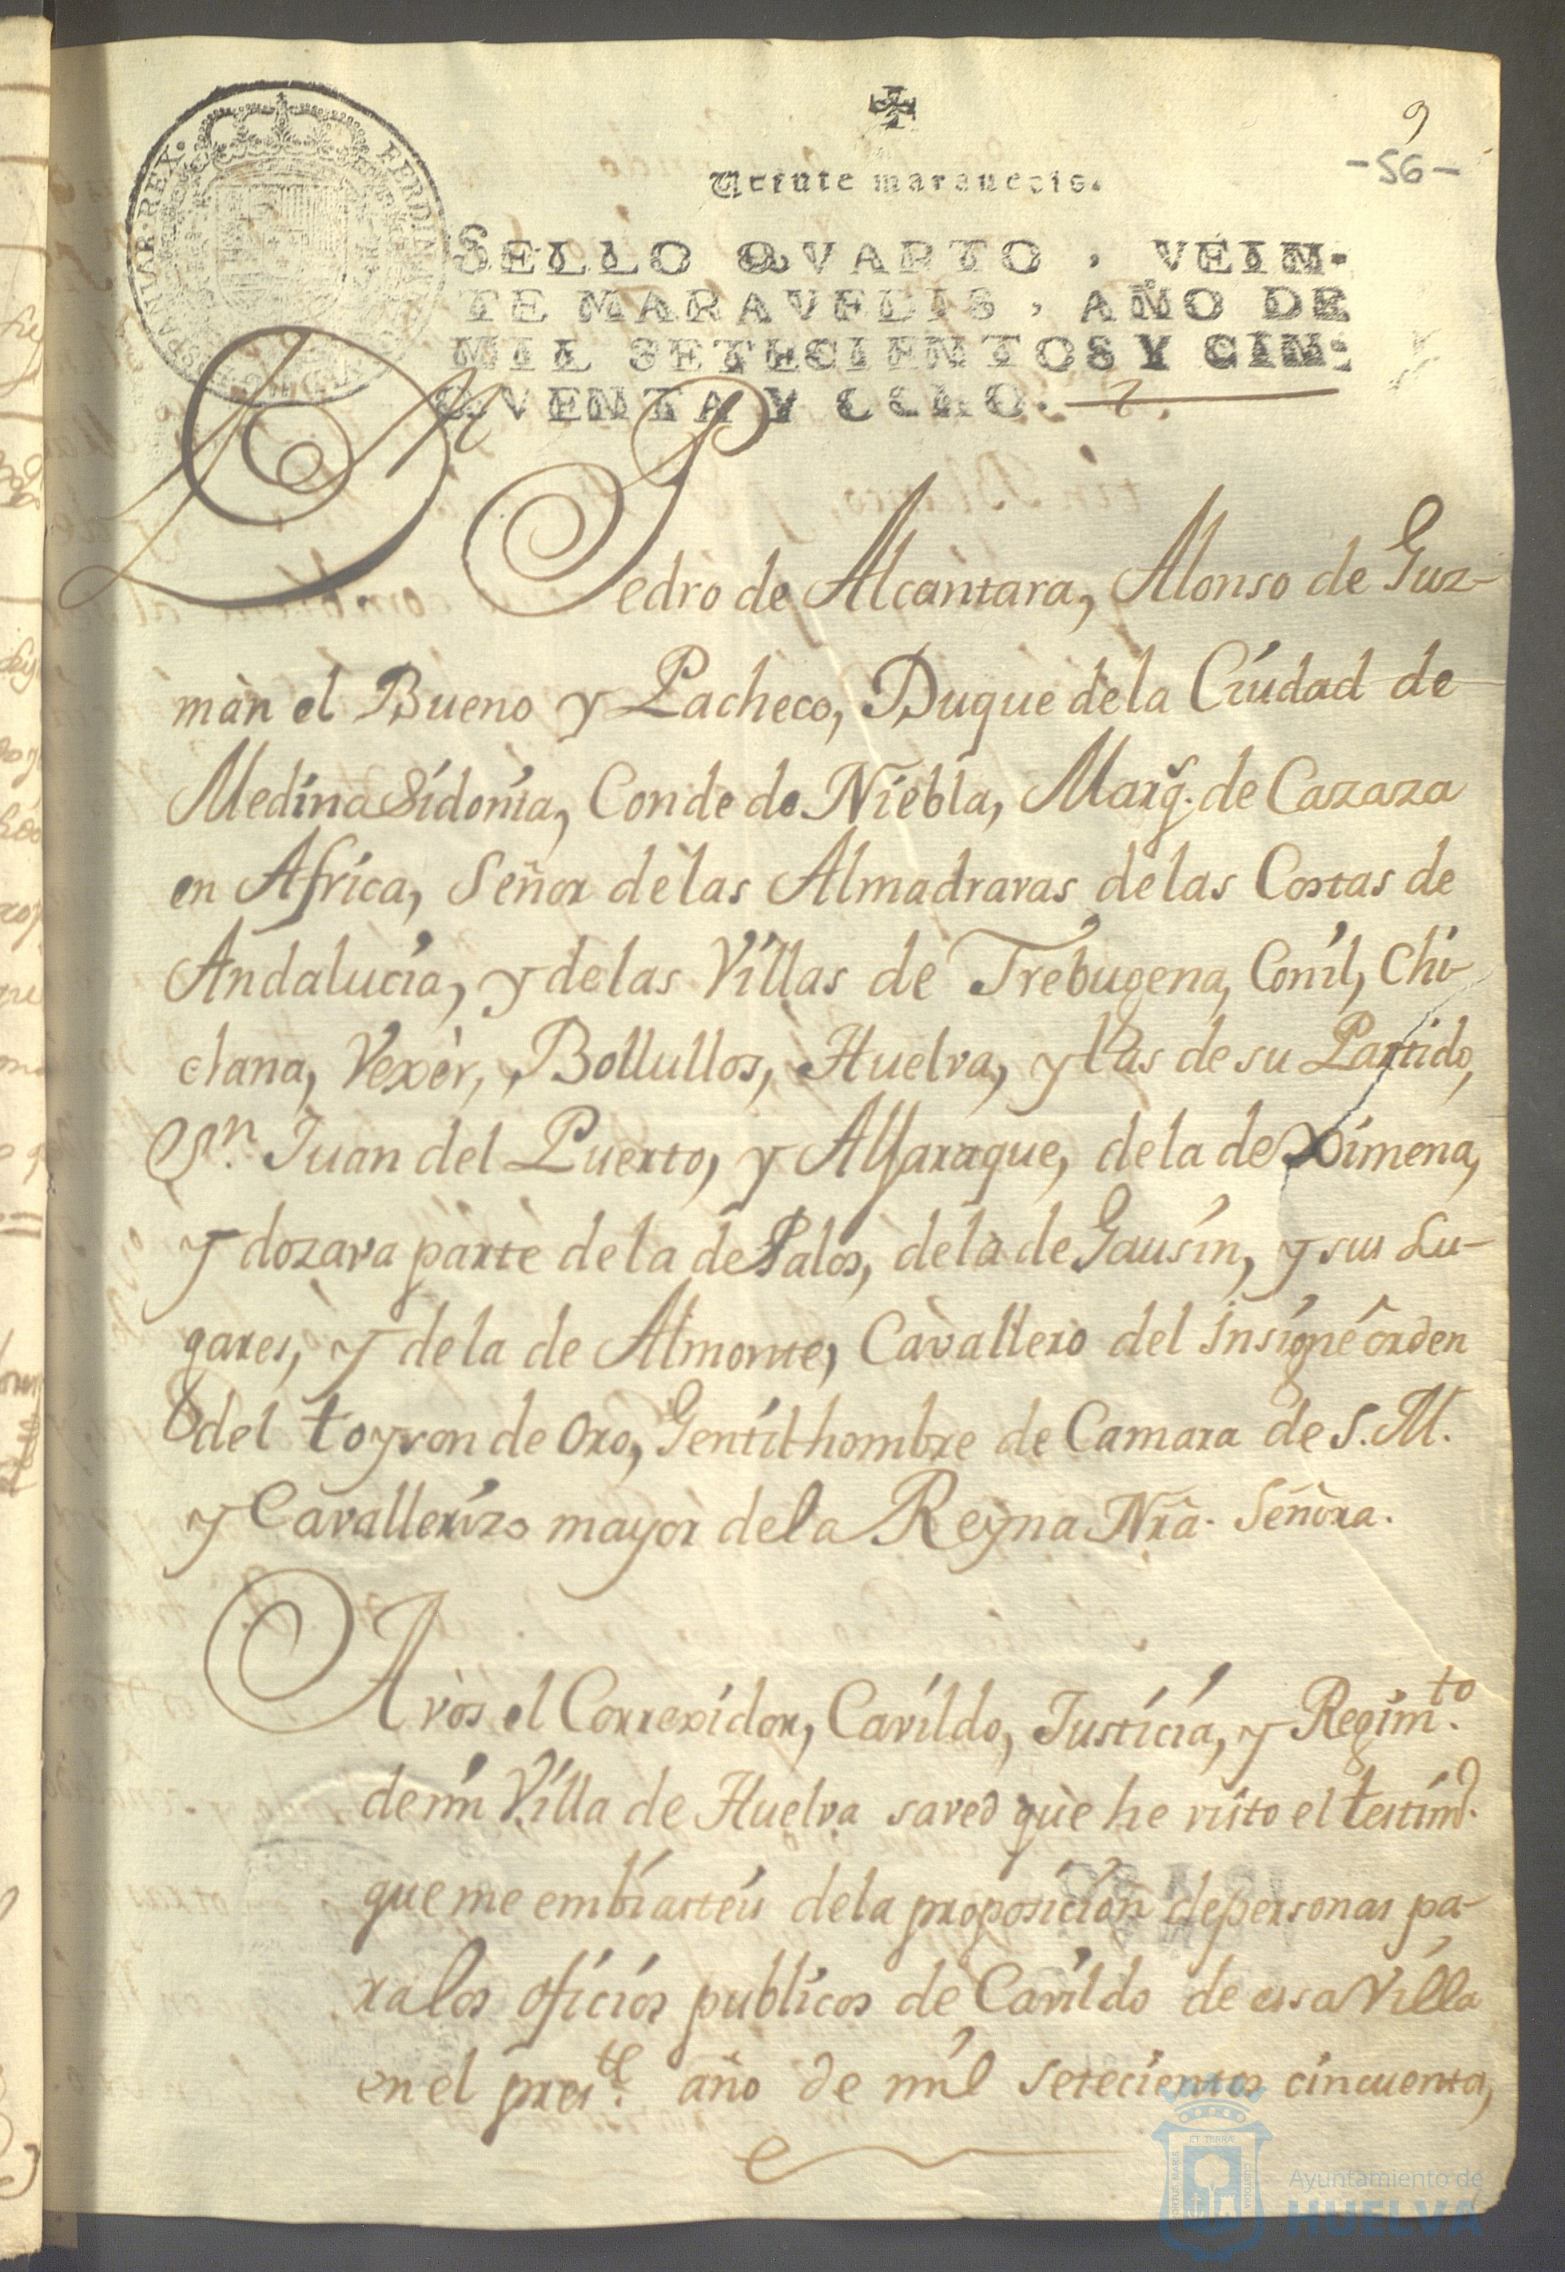 9
-56-
Veinte maravedis.
SELLO QVARTO, VEIN-
TE MARAVEDIS, AÑO DE
MIL SETECIENTOS Y CIN-
QVENTA Y OCHO.
Dn Pedro de Alcantara, Alonso de Guz-
màn el Bueno y Pacheco, Duque dela Ciudad de
Medina Sidonia, Conde de Niebla, Marqs. de Cazaza
en Africa, Señor delas Almadravas delas Costas de
Andalucia, y delas Villas de Trebugena, Conil, Chi-
clana, Vexèr, Bollullos, Huelva, y las de su Partido,
Sn. Juan del Puerto, y Alfaraque, dela de Ximena,
y dozava parte dela de Palos, dela de Gausin, y sus Lu-
gares, y dela de Almonte, Cavallero del Insigne orden
del toyson de Oro, Gentilhombre de Camara de S. M.
y Cavallerizo mayor dela Reyna Nrà. Señora.
A vòs el Correxidor, Cavildo, Justicia, y Regimto.
de mi Villa de Huelva saved què he visto el testimo.
que me embiasteis dela proposicion depersonas pa-
ralos oficios publicos de Cavildo de essa Villa
en el preste. año de mil setecientos cincuenta,
ET TERRÆ
Ayuntamiento de
HUELVA